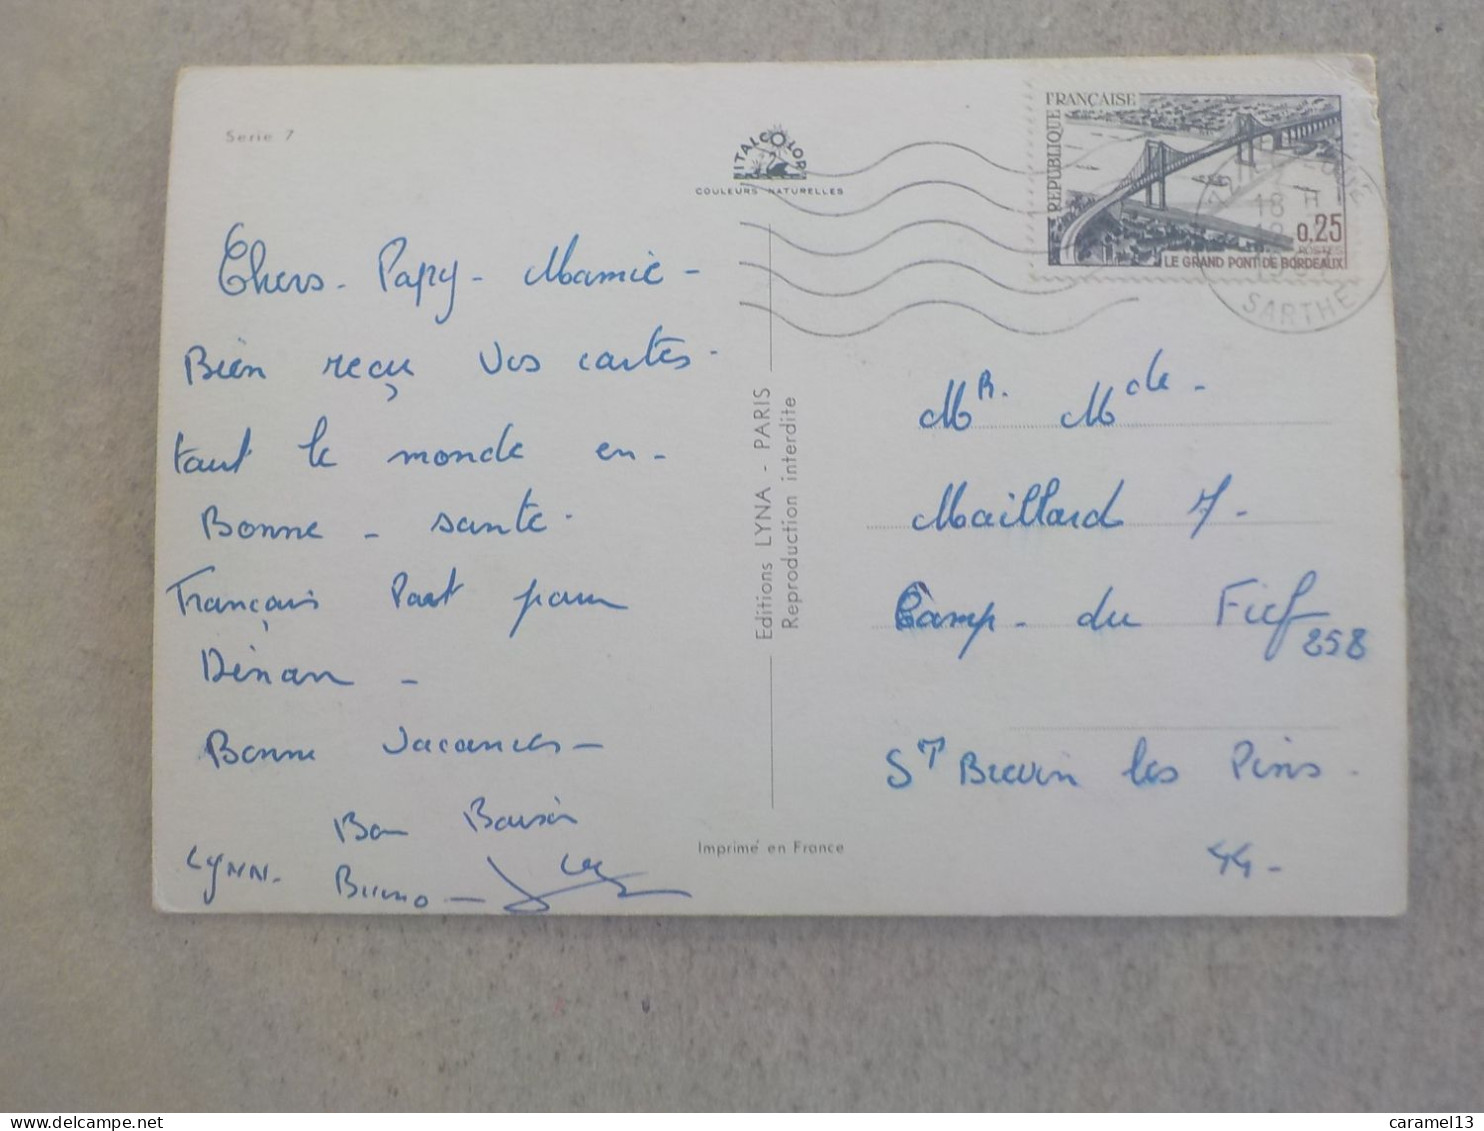 Serie 7
ITALCOLOR
COULEURS NATURELLES
Chers - Papy - Mamie -
Bien reçu vos cartes -
tout le monde en -
Bonne - santé -
Français Part pour
Dinan -
Bonne Vacances -
Bon Baisér
LYNN. Bruno -
Editions LYNA - PARIS
Reproduction interdite
Imprimé en France
REPUBLIQUE FRANÇAISE
0,25
POSTES
LE GRAND PONT DE BORDEAUX
18 H
SARTHE
MR. Mde -
Maillard J -
Camp - du Fief
258
ST Brevin les Pins -
44 -
caramel13